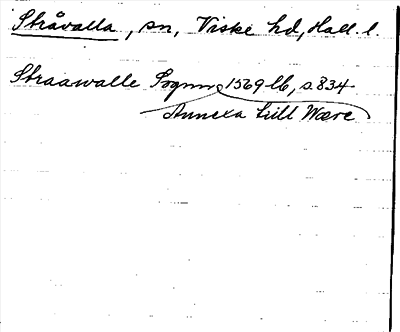 Stråvalla, sn, Viske hd, Hall. l.
Straawalle Sognn, 1569 lb, s. 834
Annexa till Wære